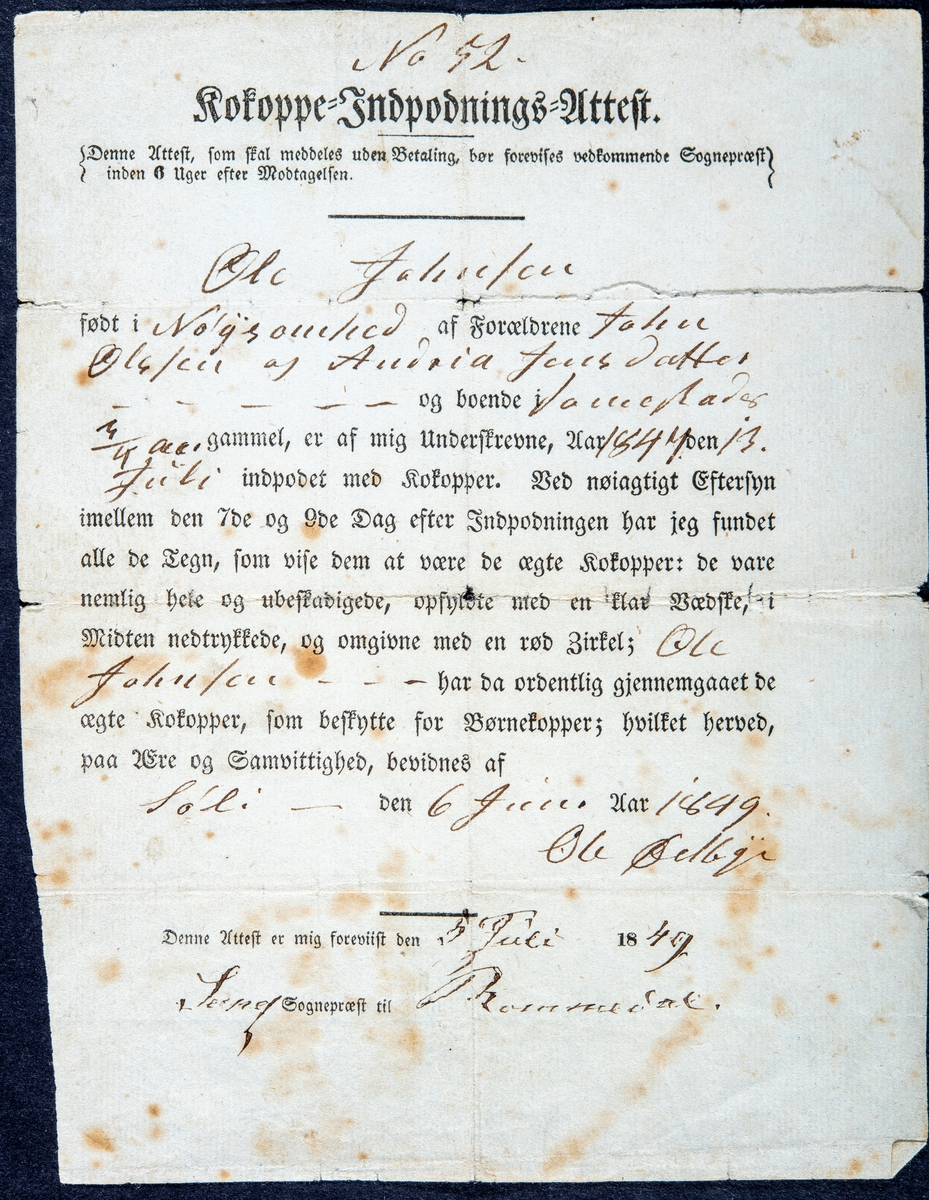 No 52.
Kokoppe=Indpodnings=Attest.
Denne Attest, som skal meddeles uden Betaling, bør forevises vedkommende Sognepræst
inden 6 Uger efter Modtagelsen.
Ole Johnsen
født i Nøysomhed af Forældrene John
Olssen og Andria Jensdatter
– – – – – og boende i samestades
gammel, er af mig Underskrevne, Aar 1847 den 13.
Juli indpodet med Kokopper. Ved nøiagtigt Eftersyn
imellem den 7de og 9de Dag efter Indpodningen har jeg fundet
alle de Tegn, som vise dem at være de ægte Kokopper: de vare
nemlig hele og ubeskadigede, opfyldte med en klar Vædske, i
Midten nedtrykkede, og omgivne med en rød Zirkel; Ole
Johnsen – – – har da ordentlig gjennemgaaet de
ægte Kokopper, som beskytte for Børnekopper; hvilket herved,
paa Ære og Samvittighed, bevidnes af
– den 6 Juni Aar 1849.
Ole
Denne Attest er mig foreviist den 5 Juli 1849
Sognepræst til Rommedal.